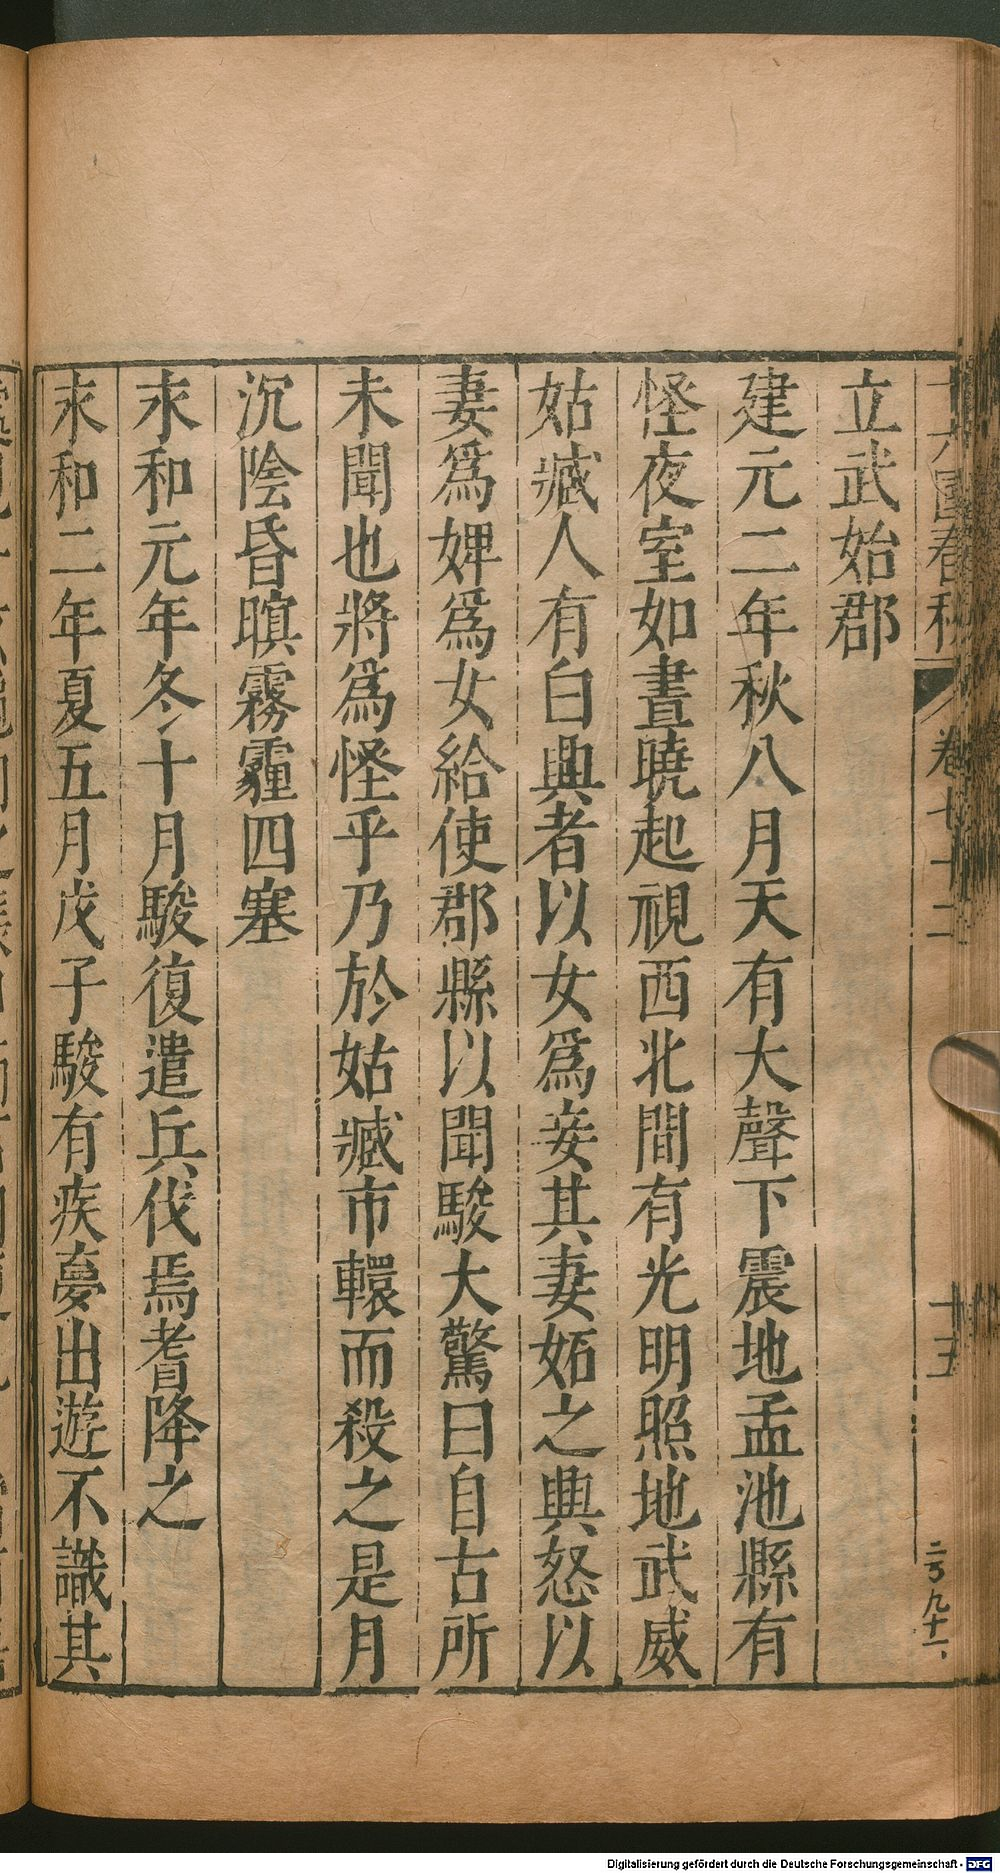 十六國春秋 卷七十二 十五
立武始郡
建元二年秋八月天有大聲下震地孟池縣有
怪夜室如晝曉起視西北間有光明照地武威
姑臧人有白興者以女爲妾其妻妬之興怒以
妻爲婢爲女給使郡縣以聞駿大驚曰自古所
未聞也將爲怪乎乃於姑臧市轘而殺之是月
沉陰昏暝霧霾四塞
永和元年冬十月駿復遣兵伐焉耆降之
永和二年夏五月戊子駿有疾夢出遊不識其
Digitalisierung gefördert durch die Deutsche Forschungsgemeinschaft - DFG